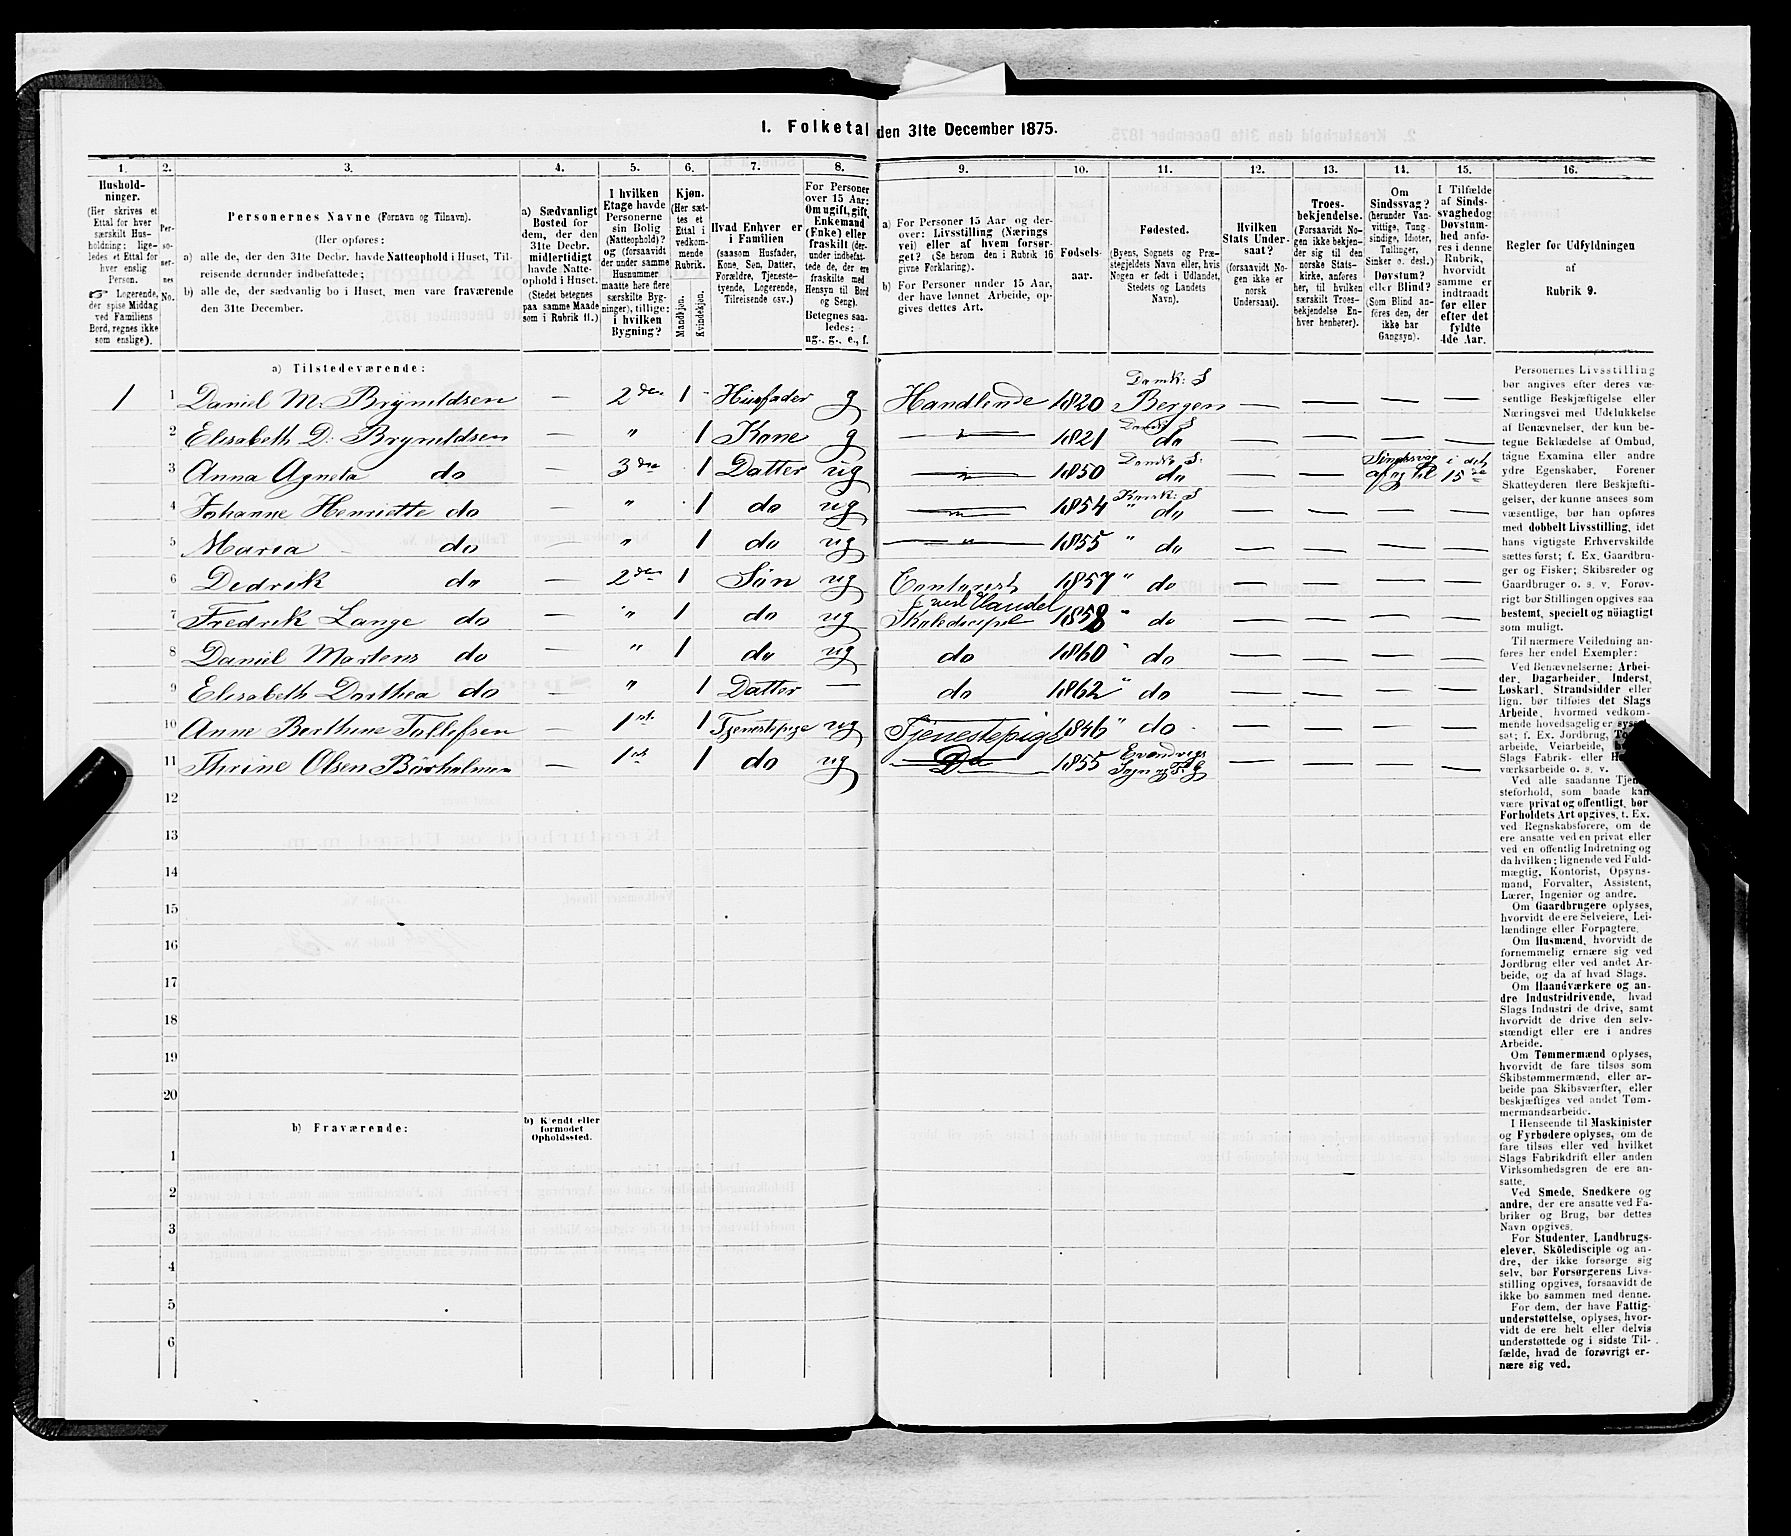 1. Folketal den 31te December 1875.
1. 2. 3. 4. 5. 6. 7. 8. 9. 10. 11. 12. 13. 14. 15. 16.
Hushold-
ninger.
(Her skrives et
Ettal for hver
særskilt Hus-
holdning; lige-
ledes et Ettal for
hver enslig
Person.
☞ Logerende,
der spise Middag
ved Familiens
Bord, regnes ikke
som enslige).
Per-
so-
ner-
nes
No.
Personernes Navne (Fornavn og Tilnavn).
(Her opføres:
a) alle de, der den 31te Decbr. havde Natteophold i Huset, Til-
reisende derunder indbefattede;
b) alle de, der sædvanlig bo i Huset, men vare fraværende
den 31te December.
a) Sædvanligt
Bosted for
dem, der den
31te Decbr.
midlertidigt
havde Natte-
ophold i Huset.
(Stedet betegnes
paa samme Maade
som i Rubrik 11.)
I hvilken
Etage havde
Personerne
sin Bolig
(Natteophold)?
og (forsaavidt
der under samme
Husnummer
maatte høre flere
særskilte Byg-
ninger), tillige:
i hvilken
Bygning?
Kjøn.
(Her sæt-
tes et
Ettal i
vedkom-
mende
Rubrik.
Mandkjøn.
Kvindekjøn.
Hvad Enhver er
i Familien
(saasom Husfader,
Kone, Søn, Datter,
Forældre, Tjeneste-
tyende, Logerende,
Tilreisende osv.).
For Personer
over 15 Aar:
Om ugift, gift,
Enkemand
(Enke) eller
fraskilt (der-
under indbefat-
tede de, der ere
fraskilte med
Hensyn til Bord
og Seng).
Betegnes saa-
ledes:
ug., g., e., f.
a) For Personer 15 Aar og der-
over: Livsstilling (Nærings
vei) eller af hvem forsør-
get? (Se herom den i Rubrik 16
givne Forklaring).
b) For Personer under 15 Aar,
der have lønnet Arbeide, op-
gives dettes Art.
Fødsels-
aar.
Fødested.
(Byens, Sognets og Præ-
stegjeldets Navn eller, hvis
Nogen er født i Udlandet,
Stedets og Landets
Navn).
Hvilken
Stats Under-
saat?
(forsaavidt No-
gen ikke er
norsk
Undersaat).
Troes-
bekjendelse.
(Forsaavidt No-
gen ikke bekjen-
der sig til den
norske Stats-
kirke, anføres
her, til hvilken
særskilt Troes-
bekjendelse En-
hver henhører).
Om
Sindssvag?
(herunder Van-
vittige, Tung
sindige, Idioter,
Tullinger,
Sinker o. desl.)
Døvstum?
eller Blind?
(Som Blind an-
føres den, der
ikke har
Gangsyn).
I Tilfælde
af Sinds-
svaghed og
Døvstum-
hed anfø-
res i denne
Rubrik,
hvorvidt
samme er
indtraadt
før eller
efter det
fyldte
4de Aar.
Regler for Udfyldningen
af
Rubrik 9.
a) Tilstedeværende:
1 1 Daniel M. Brynildsen — 2den 1 - Husfader g Handlende 1820 Domk: S Bergen — — — —
2 Elisabeth D. Brynildsen — " 1 Kone g — " — 1821 Domk: S do — — — —
3 Anna Agneta do — 3die 1 Datter ug — " — 1850 Domk: S. do — — Sindssvag i det
4 Johanne Henriette do — " 1 do ug — " — 1854 Korsk: S " do — — — —
5 Maria do — " 1 do ug — " — 1855 " do — — — —
6 Dedrik do — 2den 1 Søn ug Contorist ved Handel 1857 " do — — — —
7 Fredrik Lange do — " 1 do ug Skoledisipel 1858 " do — — — —
8 Daniel Martens do — " 1 do ug do 1860 " do — — — —
9 Elisabeth Dorthea do — " 1 Datter — do 1862 " do — — — —
10 Anne Berthine Tollefsen — 1st. 1 Tjenestepige ug Tjenestepige 1846 " do — — — —
11 Thrine Olsen — 1st 1 do ug Do 1855 — — — —
12
13
14
15
16
17
18
19
20
b) Fraværende:
b) Kjendt eller
formodet
Opholdssted.
1
2
3
4
5
6
Personernes Livsstilling
bør angives efter deres væ-
sentlige Beskjæftigelse eller
Næringsvei med Udelukkelse
af Benævnelser, der kun be-
tegne Beklædelse af Ombud,
tagne Examina eller andre
ydre Egenskaber. Forener
Skatteyderen flere Beskjæfti-
gelser, der kunne ansees som
væsentlige, bør han opføres
med dobbelt Livsstilling, idet
hans vigtigste Erhvervskilde
sættes først; f. Ex. Gaardbru-
ger og Fisker; Skibsreder og
Gaardbruger o. s. v. Forøv-
rigt bør Stillingen opgives saa
bestemt, specielt og nöiagtigt
som muligt.
Til nærmere Veiledning an-
føres her endel Exempler:
Ved Benævnelserne: Arbei-
der, Dagarbeider, Inderst,
Løskarl, Strandsidder eller
lign. bør tilføies det Slags
Arbeide, hvormed vedkom-
mende hovedsagelig er syssel-
sat; f. Ex. Jordbrug,
arbeide, Veiarbeide,
Slags Fabrik- eller
værksarbeide o. s. v.
Ved alle saadanne Tjene-
steforhold, som baade kan
være privat og offentligt, bør
Forholdets Art opgives, t. Ex.
ved Regnskabsførere, om de
ere ansatte ved en privat eller
ved en offentlig Indretning og
da hvilken; lignende ved Fuld-
mægtig, Kontorist, Opsyns-
mand, Forvalter, Assistent,
Lærer, Ingeniør og andre.
Om Gaardbrugere oplyses,
hvorvidt de ere Selveiere, Lei-
lændinge eller Forpagtere.
Om Husmænd, hvorvidt de
fornemmelig ernære sig ved
Jordbrug eller ved andet Ar-
beide, og da af hvad Slags.
Om Haandværkere og an-
dre Industridrivende, hvad
Slags Industri de drive, samt
hvorvidt de drive den selv-
stændigt eller ere i andres
Arbeide.
Om Tømmermænd oplyses,
hvorvidt de fare tilsøs som
Skibstømmermænd, eller ar-
beide paa Skibsværfter, eller
beskjæftiges ved andet Tøm-
mermandsarbeide.
I Henseende til Maskinister
og Fyrbødere oplyses, om de
fare tilsøs eller ved hvilket
Slags Fabrikdrift eller anden
Virksomhedsgren de ere an-
satte.
Ved Smede, Snedkere og
andre, der ere ansatte ved Fa-
briker og Brug, bør dettes
Navn opgives.
For Studenter, Landbrugs-
elever, Skoledisciple og an-
dre, der ikke forsørge sig
selv, bør Forsørgerens Livs-
stilling opgives, forsaavidt de
ikke bo sammen med denne.
For dem, der have Fattig-
understøttelse, oplyses, hvor-
vidt de ere helt eller delvis
understøttede og i sidste Til-
fælde, hvad de forøvrigt er-
nære sig ved.